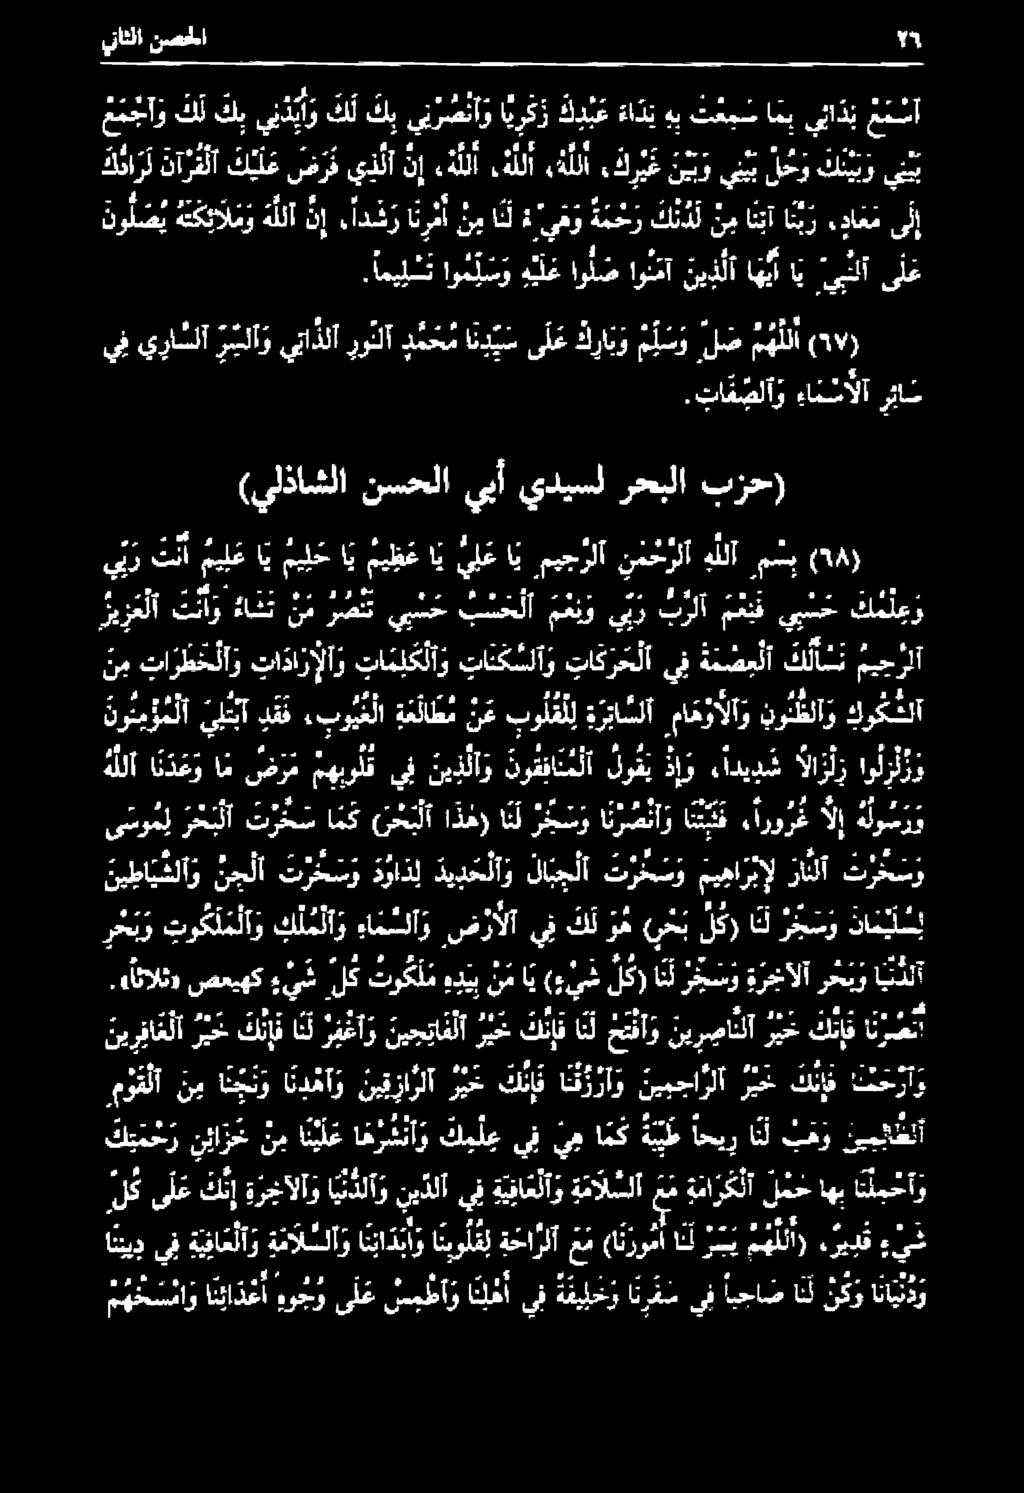 ٢٦ الحصن الثاني
ٱسْمَعْ نِدَائِي بِمَا سَمِعْتَ بِهِ نِدَاءَ عَبْدِكَ زَكَرِيَّا وَٱنْصُرْنِي بِكَ لَكَ وَأَيِّدْنِي بِكَ لَكَ وَٱجْمَعْ
بَيْنِي وَبَيْنَكَ وَحُلْ بَيْنِي وَبَيْنَ غَيْرِكَ، أَللَّهُ، أَللَّهُ، أَللَّهُ، إِنَّ ٱلَّذِي فَرَضَ عَلَيْكَ ٱلْقُرْآنَ لَرَادُّكَ
إِلَى مَعَادٍ، رَبَّنَا آتِنَا مِنْ لَدُنْكَ رَحْمَةً وَهَيِّءْ لَنَا مِنْ أَمْرِنَا رَشَداً، إِنَّ ٱللَّهَ وَمَلَائِكَتَهُ يُصَلُّونَ
عَلَى ٱلنَّبِيِّ يَا أَيُّهَا ٱلَّذِينَ آمَنُوا صَلُّوا عَلَيْهِ وَسَلِّمُوا تَسْلِيماً.
(٦٧) أَللَّهُمَّ صَلِّ وَسَلِّمْ وَبَارِكْ عَلَى سَيِّدِنَا مُحَمَّدٍ ٱلنُّورِ ٱلذَّاتِي وَٱلسِّرِّ ٱلسَّارِي فِي
سَائِرِ ٱلْأَسْمَاءِ وَٱلصِّفَاتِ.
(حزب البحر لسيدي أبي الحسن الشاذلي)
(٦٨) بِسْمِ ٱللَّهِ ٱلرَّحْمَنِ ٱلرَّحِيمِ يَا عَلِيُّ يَا عَظِيمُ يَا حَلِيمُ يَا عَلِيمُ أَنْتَ رَبِّي
وَعِلْمُكَ حَسْبِي فَنِعْمَ ٱلرَّبُّ رَبِّي وَنِعْمَ ٱلْحَسْبُ حَسْبِي تَنْصُرُ مَنْ تَشَاءُ وَأَنْتَ ٱلْعَزِيزُ
ٱلرَّحِيمُ نَسْأَلُكَ ٱلْعِصْمَةَ فِي ٱلْحَرَكَاتِ وَٱلسَّكَنَاتِ وَٱلْكَلِمَاتِ وَٱلْإِرَادَاتِ وَٱلْخَطَرَاتِ مِنَ
ٱلشُّكُوكِ وَٱلظُّنُونِ وَٱلْأَوْهَامِ ٱلسَّاتِرَةِ لِلْقُلُوبِ عَنْ مُطَالَعَةِ ٱلْغُيُوبِ، فَقَدِ ٱبْتُلِيَ ٱلْمُؤْمِنُونَ
وَزُلْزِلُوا زِلْزَالاً شَدِيداً، وَإِذْ يَقُولُ ٱلْمُنَافِقُونَ وَٱلَّذِينَ فِي قُلُوبِهِمْ مَرَضٌ مَا وَعَدَنَا ٱللَّهُ
وَرَسُولُهُ إِلَّا غُرُوراً، فَثَبِّتْنَا وَٱنْصُرْنَا وَسَخِّرْ لَنَا (هٰذَا ٱلْبَحْرَ) كَمَا سَخَّرْتَ ٱلْبَحْرَ لِمُوسَى
وَسَخَّرْتَ ٱلنَّارَ لِإِبْرَاهِيمَ وَسَخَّرْتَ ٱلْجِبَالَ وَٱلْحَدِيدَ لِدَاوُدَ وَسَخَّرْتَ ٱلْجِنَّ وَٱلشَّيَاطِينَ
لِسُلَيْمَانَ وَسَخِّرْ لَنَا (كُلَّ بَحْرٍ) هُوَ لَكَ فِي ٱلْأَرْضِ وَٱلسَّمَاءِ وَٱلْمُلْكِ وَٱلْمَلَكُوتِ وَبَحْرَ
ٱلدُّنْيَا وَبَحْرَ ٱلْآخِرَةِ وَسَخِّرْ لَنَا (كُلَّ شَيْءٍ) يَا مَنْ بِيَدِهِ مَلَكُوتُ كُلِّ شَيْءٍ كهيعص «ثلاثاً».
أُنْصُرْنَا فَإِنَّكَ خَيْرُ ٱلنَّاصِرِينَ وَٱفْتَحْ لَنَا فَإِنَّكَ خَيْرُ ٱلْفَاتِحِينَ وَٱغْفِرْ لَنَا فَإِنَّكَ خَيْرُ ٱلْغَافِرِينَ
وَٱرْحَمْنَا فَإِنَّكَ خَيْرُ ٱلرَّاحِمِينَ وَٱرْزُقْنَا فَإِنَّكَ خَيْرُ ٱلرَّازِقِينَ وَٱهْدِنَا وَنَجِّنَا مِنَ ٱلْقَوْمِ
ٱلظَّالِمِينَ وَهَبْ لَنَا رِيحاً طَيِّبَةً كَمَا هِيَ فِي عِلْمِكَ وَٱنْشُرْهَا عَلَيْنَا مِنْ خَزَائِنِ رَحْمَتِكَ
وَٱحْمِلْنَا بِهَا حَمْلَ ٱلْكَرَامَةِ مَعَ ٱلسَّلَامَةِ وَٱلْعَافِيَةِ فِي ٱلدِّينِ وَٱلدُّنْيَا وَٱلْآخِرَةِ إِنَّكَ عَلَى كُلِّ
شَيْءٍ قَدِيرٌ، (أَللَّهُمَّ يَسِّرْ لَنَا أُمُورَنَا) مَعَ ٱلرَّاحَةِ لِقُلُوبِنَا وَأَبْدَانِنَا وَٱلسَّلَامَةِ وَٱلْعَافِيَةِ فِي دِينِنَا
وَدُنْيَانَا وَكُنْ لَنَا صَاحِباً فِي سَفَرِنَا وَخَلِيفَةً فِي أَهْلِنَا وَٱطْمِسْ عَلَى وُجُوهِ أَعْدَائِنَا وَٱمْسَخْهُمْ